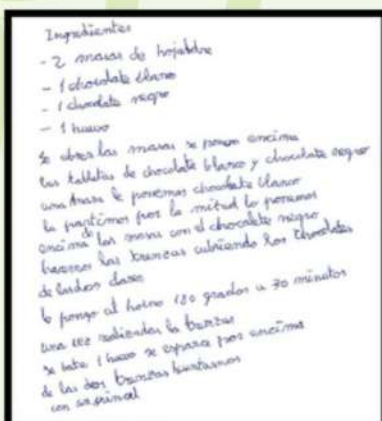 Ingredientes
- 2 masas de hojaldre
- 1 chocolate blanco
- 1 chocolate negro
- 1 huevo
se abren las masas se ponen encima
las tabletas de chocolate blanco y chocolate negro
una masa le ponemos chocolate blanco
la partimos por la mitad lo ponemos
encima de las masas con el chocolate negro
hacemos las trenzas cubriendo los chocolates
de lardos
lo pongo al horno 180 grados a 30 minutos
una vez realizadas la trenzas
se bate 1 huevo se esparce por encima
de las dos trenzas
con un pincel